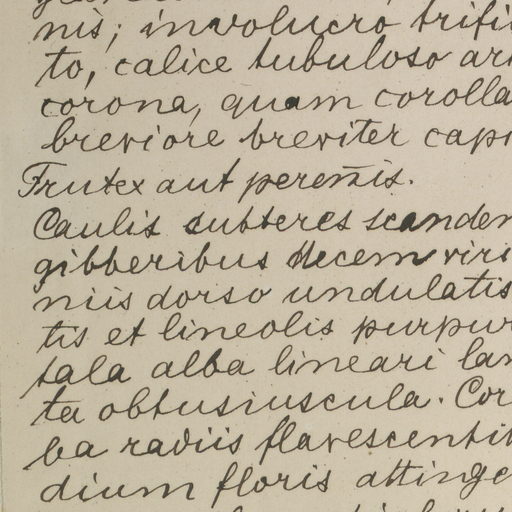 nis; involucro trifi
to, calice tubuloso ar
corona, quam corolla
breviore breviter cap
Frutex aut pereñis.
Caulis subteres scanden
gibberibus decem viri
niis dorso undulatis
tis et lineolis purpur
tala alba lineari lan
ta obtusiuscula. Cor
ba radiis flavescenti
dium floris attinge